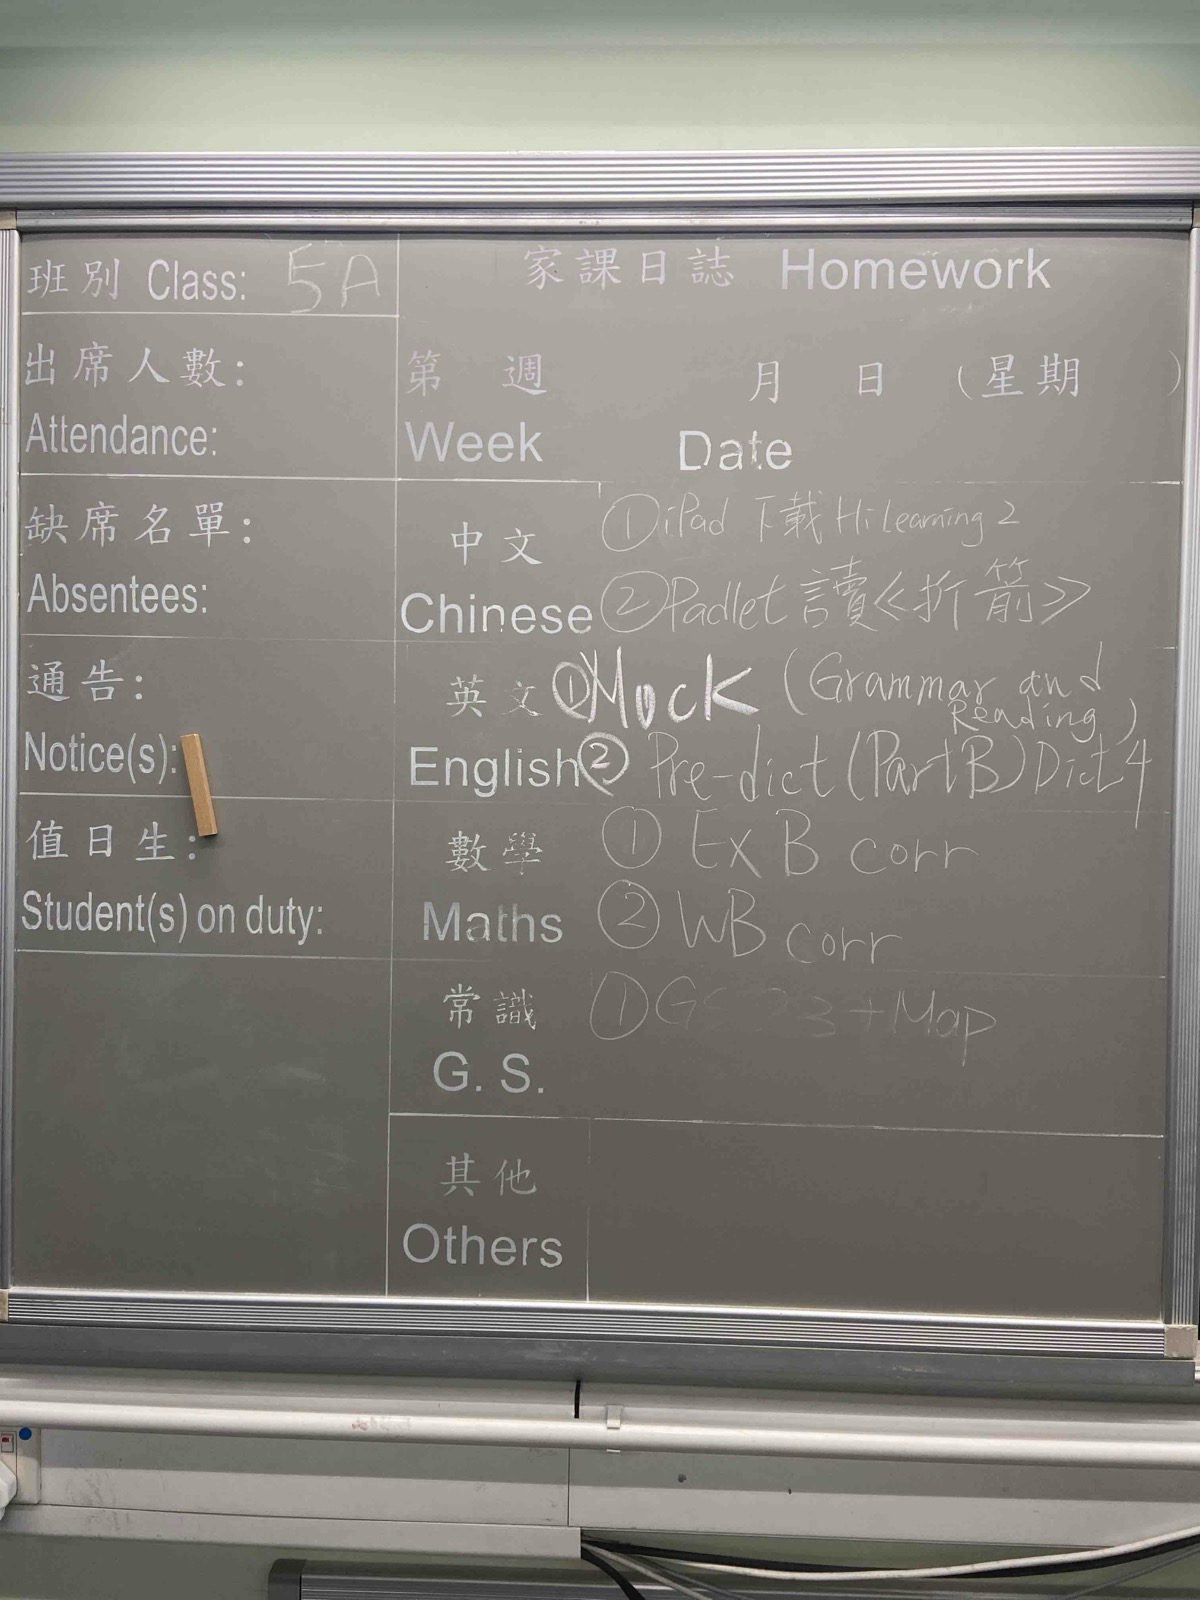 班別 Class: 5A
出席人數:
Attendance:
缺席名單:
Absentees:
通告:
Notice(s):
值日生:
Student(s) on duty:
家課日誌 Homework
第 週 月 日 (星期 )
Week Date
中文
Chinese
① iPad 下載 HiLearning 2
② Padlet 讀《折箭》
英文
English
① Mock (Grammar and
Reading)
② Pre-dict (Part B) Dict 4
數學
Maths
① Ex B corr
② WB corr
常識
G. S.
① GS 23 + Map
其他
Others